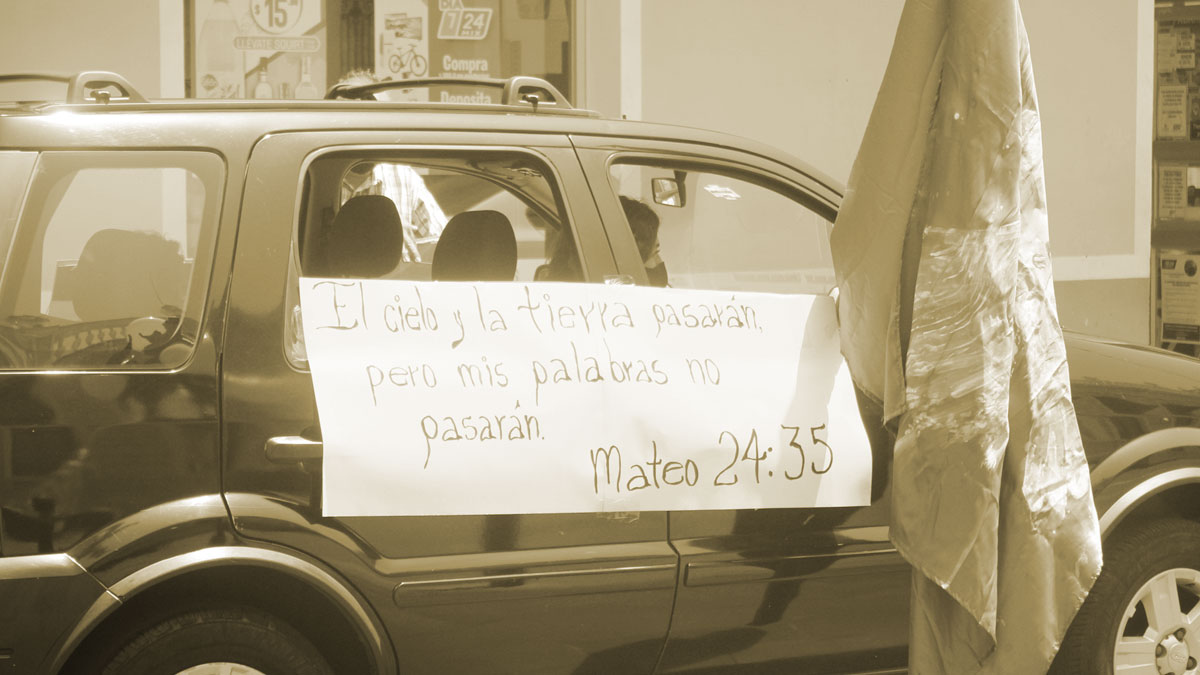 $15
LLÉVATE SOUR
DÍA
7/24
Compra
Deposita
El cielo y la tierra pasarán,
pero mis palabras no
pasarán.
Mateo 24:35